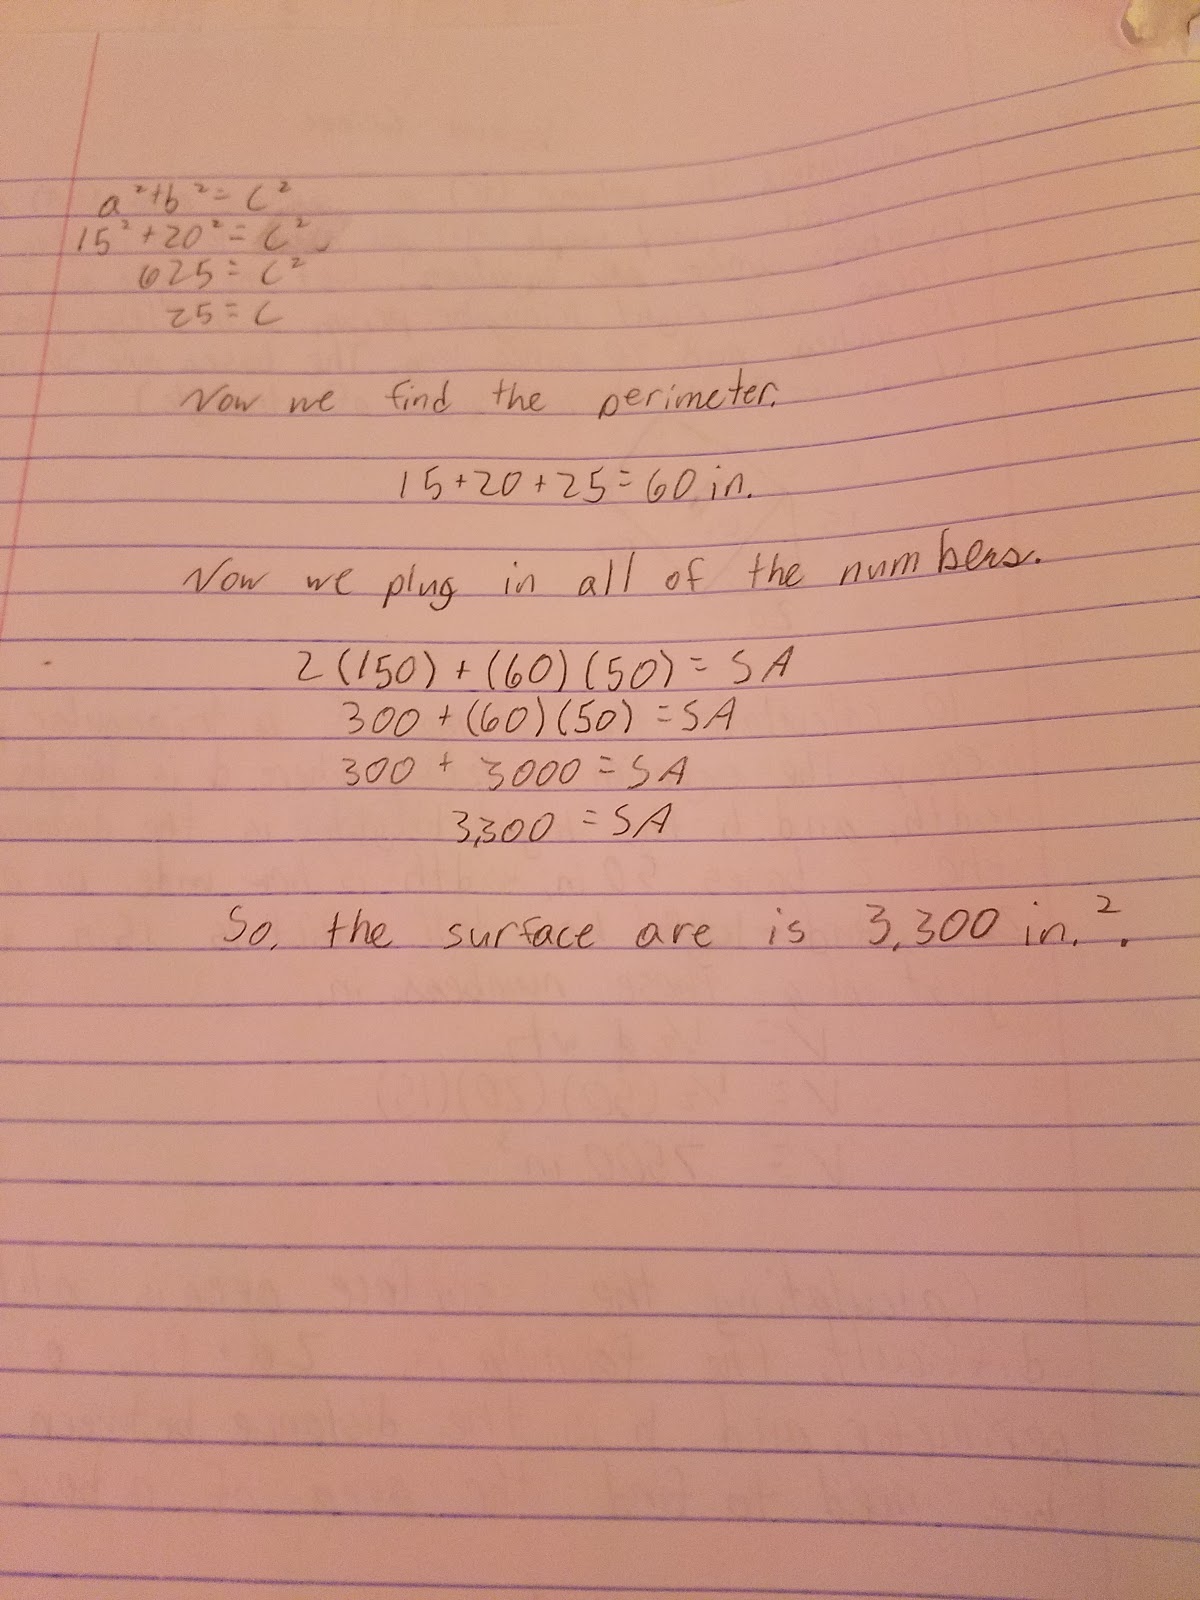 a²+b²=c²
15²+20²=c²
625=c²
25=c
Now we find the perimeter.
15+20+25=60 in.
Now we plug in all of the numbers.
2(150)+(60)(50)=SA
300+(60)(50)=SA
300+3000=SA
3,300=SA
So, the surface are is 3,300 in.².